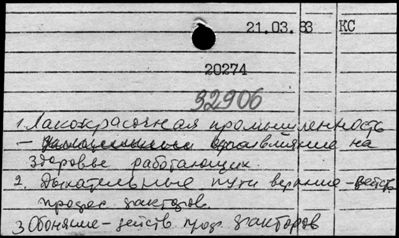 21.03.83 КС
20274
32906
1. Лакокрасочная промышленность
- влияние на
здоровье работающих.
2. Дыхательные пути верхние - действ.
профес. факторов
3 Обоняние - действ проф. факторов